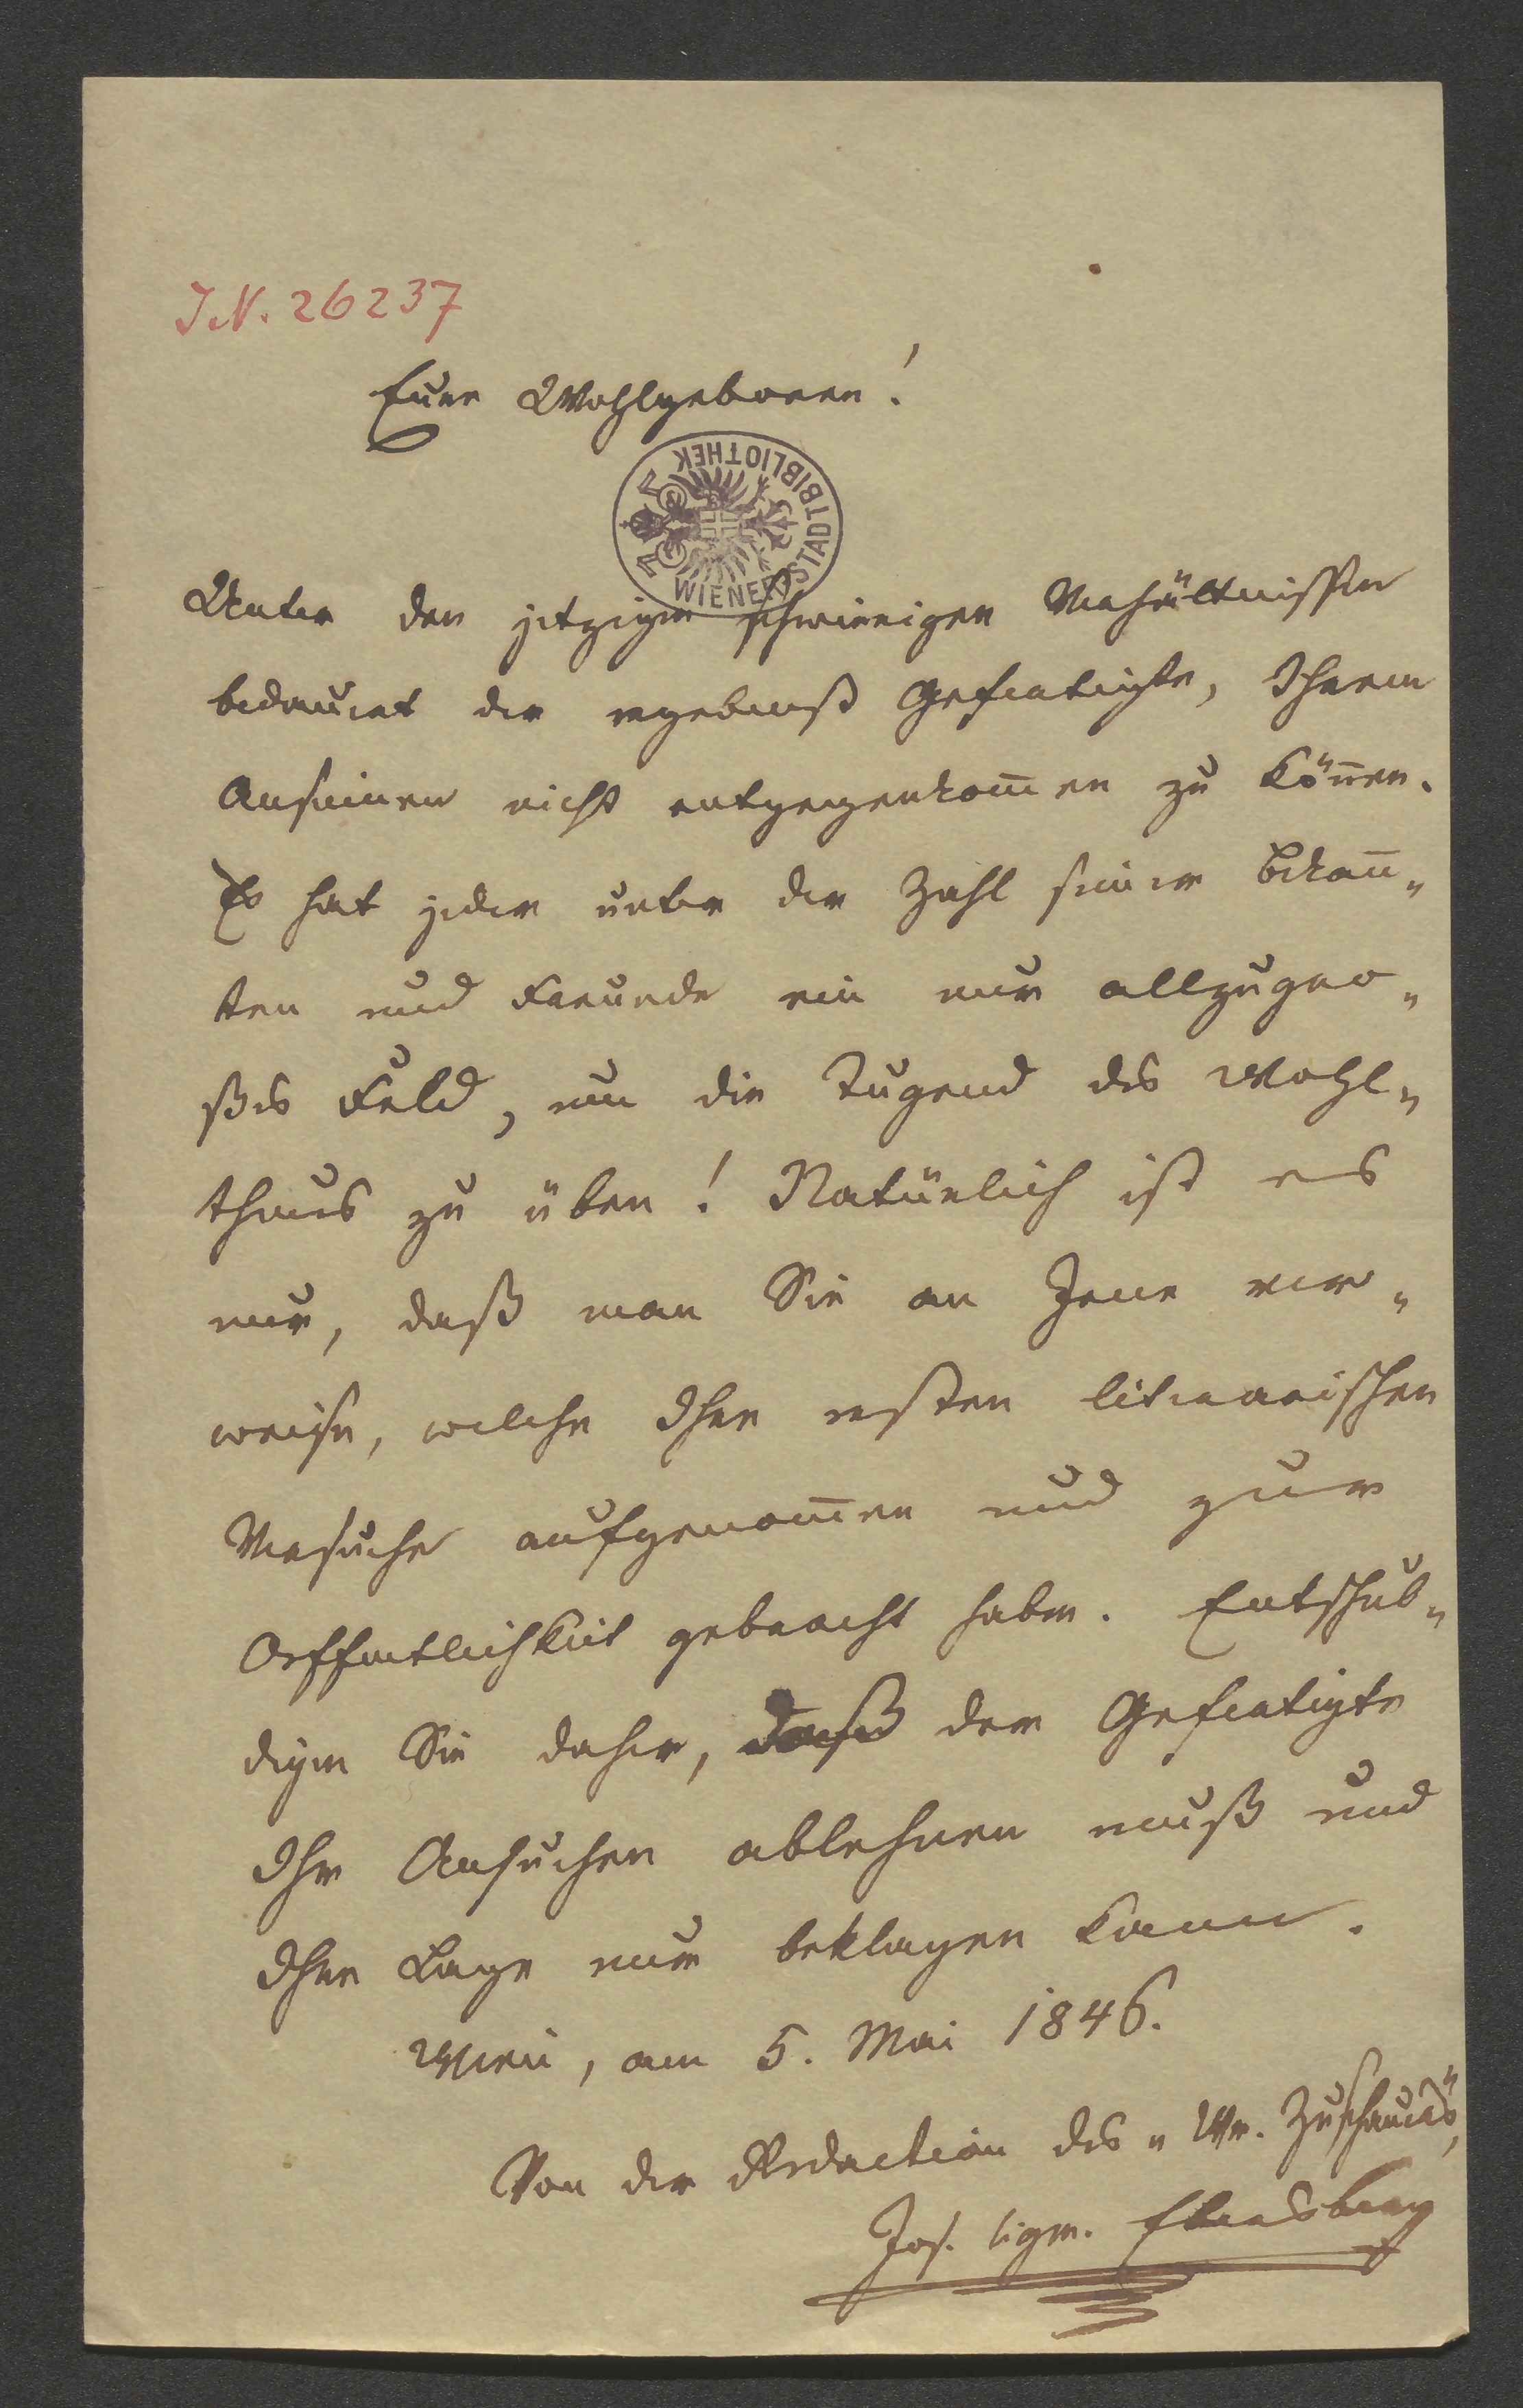 I.N. 26237
Euer Wohlgeboren!
WIENER STADTBIBLIOTHEK
Unter den jetzigen schwierigen Verhältnissen
bedauert der ergebenst Gefertigte, Ihrem
Ansinnen nicht entgegenkom̄en zu kön̄en.
Es hat jeder unter der Zahl seiner Bekan̄„
ten und Freunde ein nur allzugro„
ßes Feld, um die Tugend des Wohl„
thuns zu üben! Natürlich ist es
nur, daß man Sie an Jene ver„
weise, welche Ihre ersten literarischen
Versuche aufgenom̄en und zur
Oeffentlichkeit gebracht haben. Entschul„
digen Sie daher, daß der Gefertigte
Ihr Ansuchen ablehnen muß und
Ihre Lage nur beklagen kann.
Wien, am 5. Mai 1846.
Von der Redaction des „Wr. Zuschauers“,
Jos. Sigm. Ebersberg